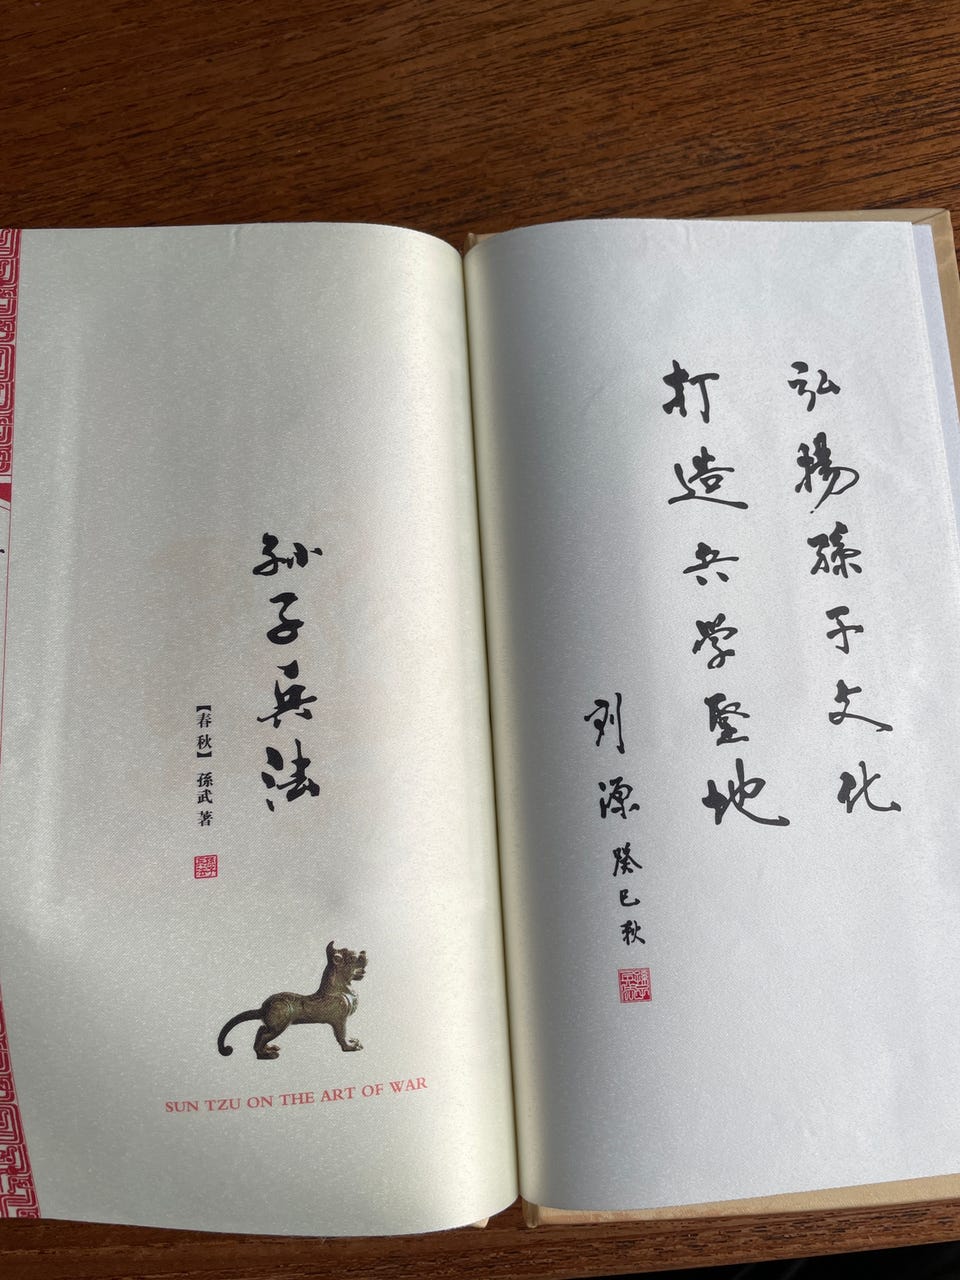 弘揚孫子文化
打造兵学聖地
刘源 癸巳秋
孙子兵法
【春秋】孫武 著
SUN TZU ON THE ART OF WAR